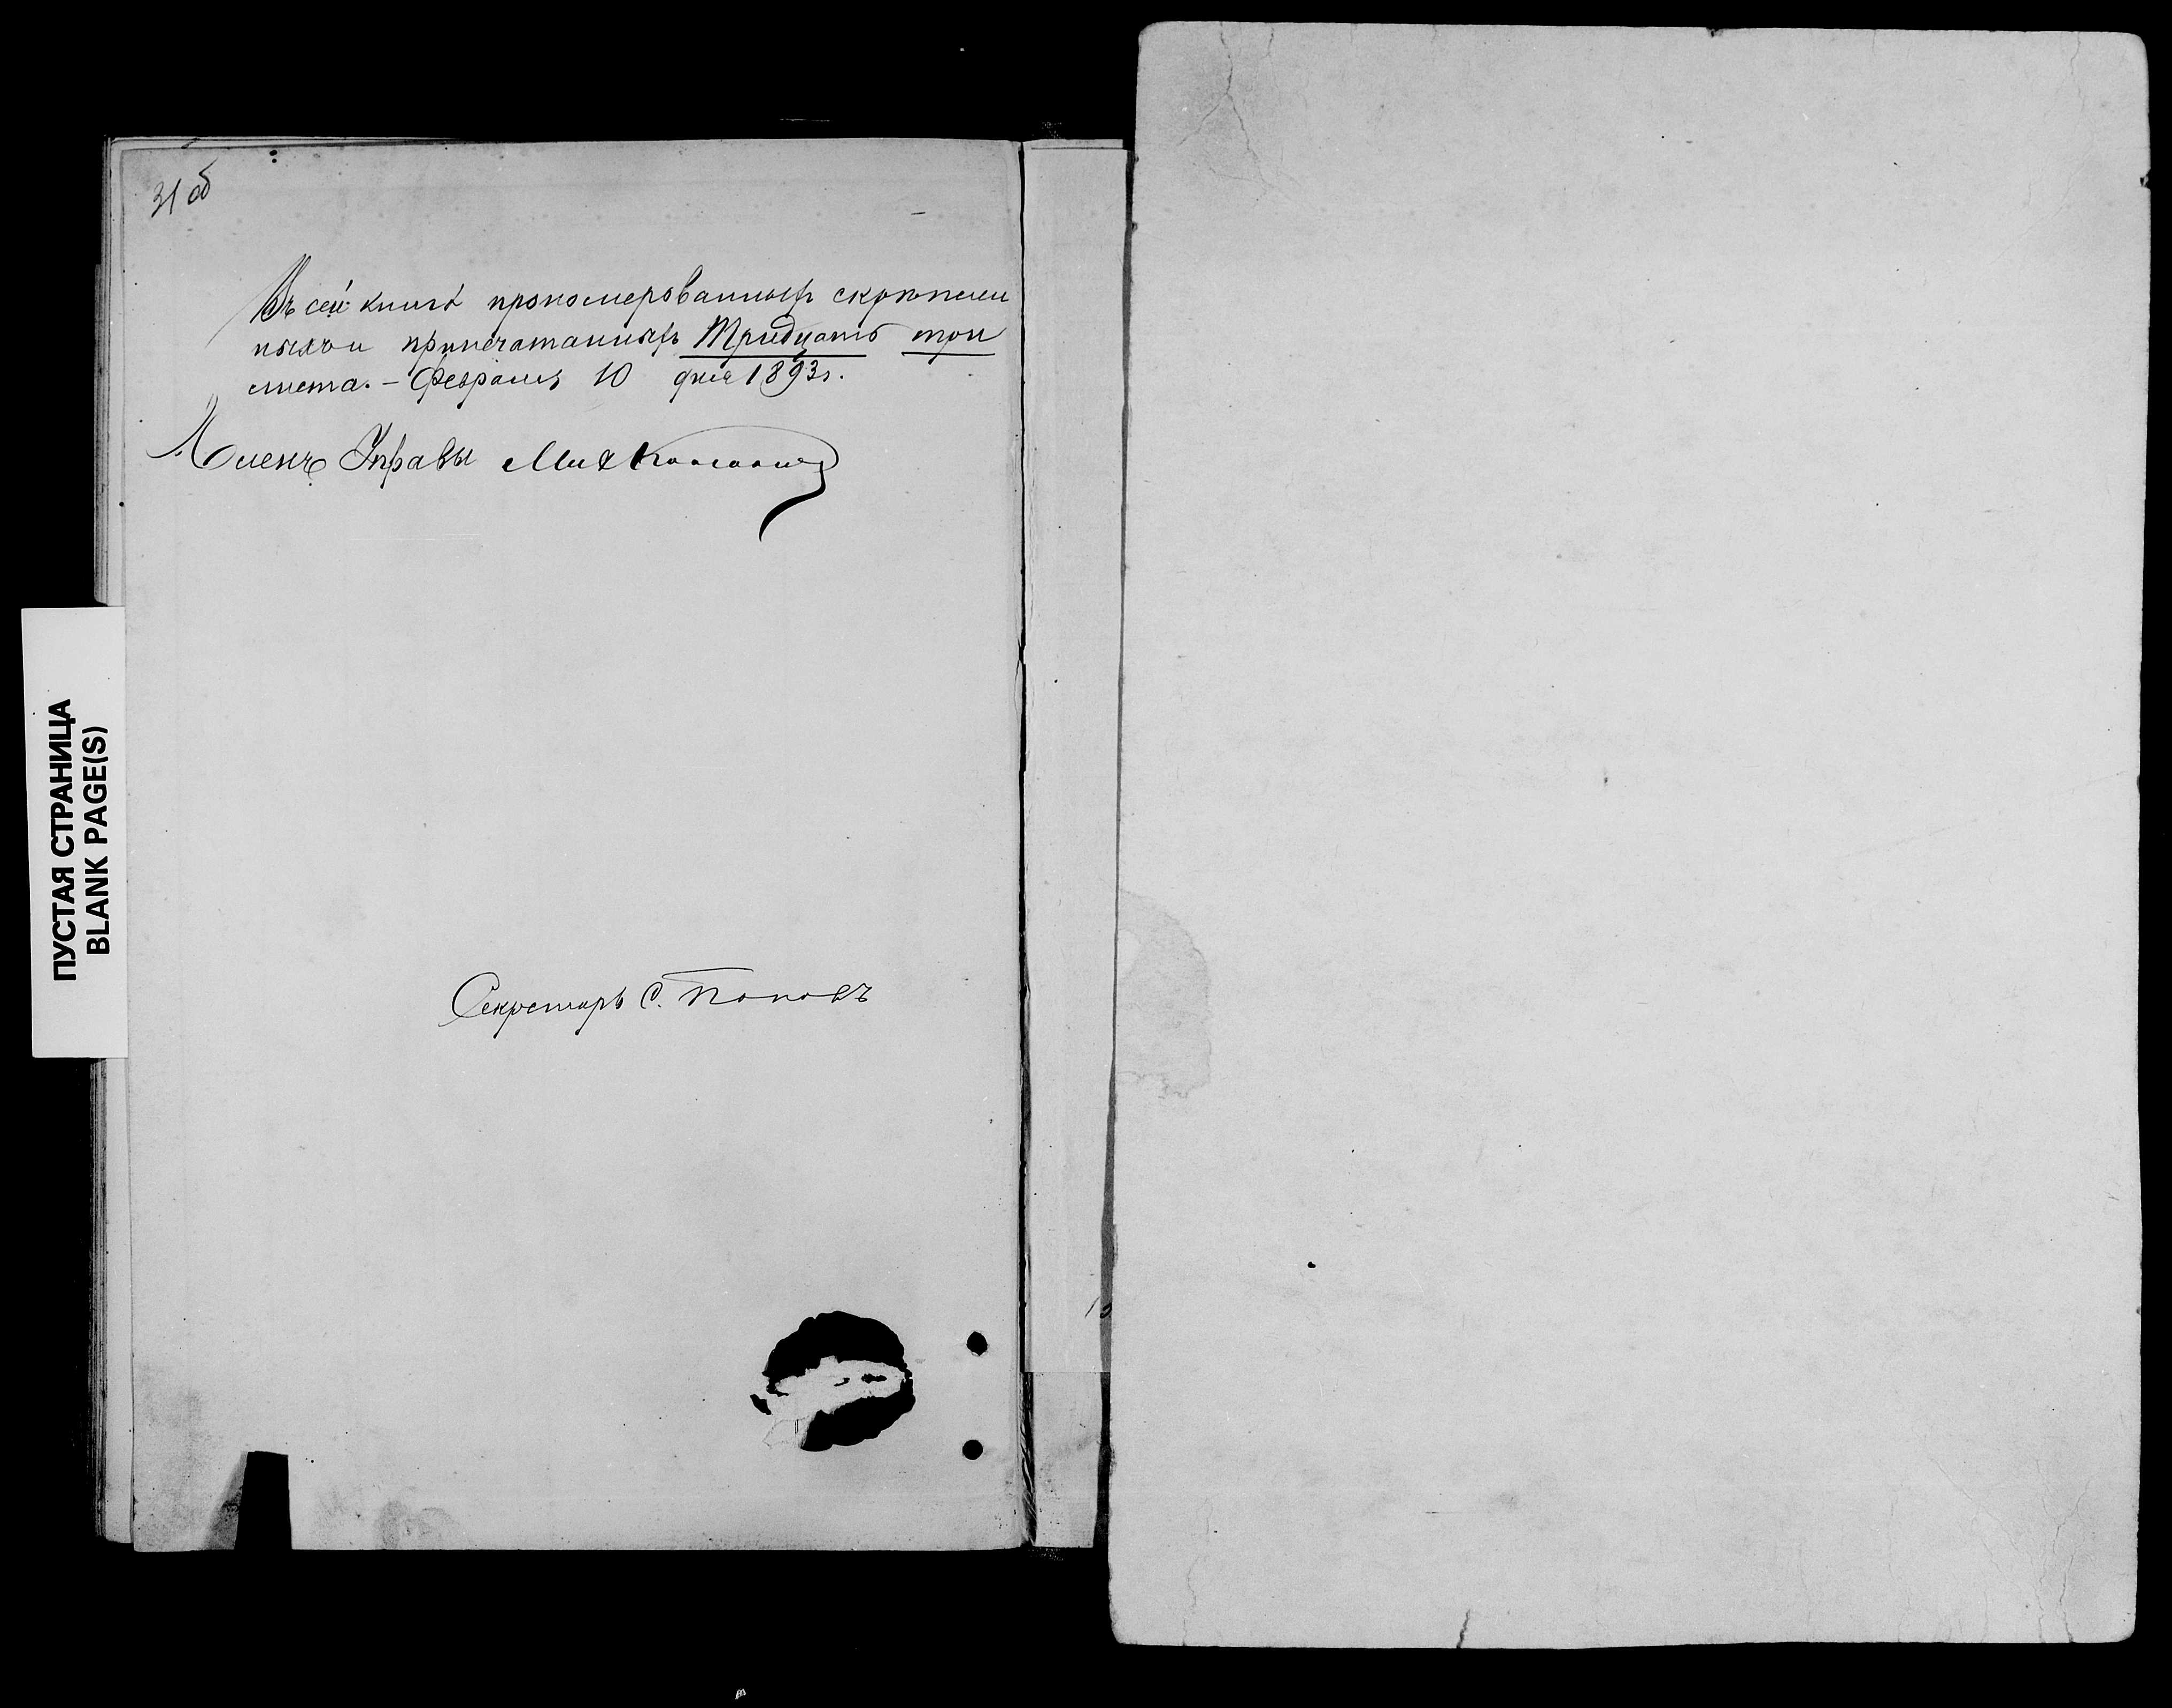 31 об
Въ сей книгѣ прономерованныхъ скрѣплен
ныхъ и припечатанныхъ Тридцать три
листа. – Февраля 10 дня 1893 г.
Членъ Управы Мих
Секретарь С. Поповъ
ПУСТАЯ СТРАНИЦА
BLANK PAGE(S)